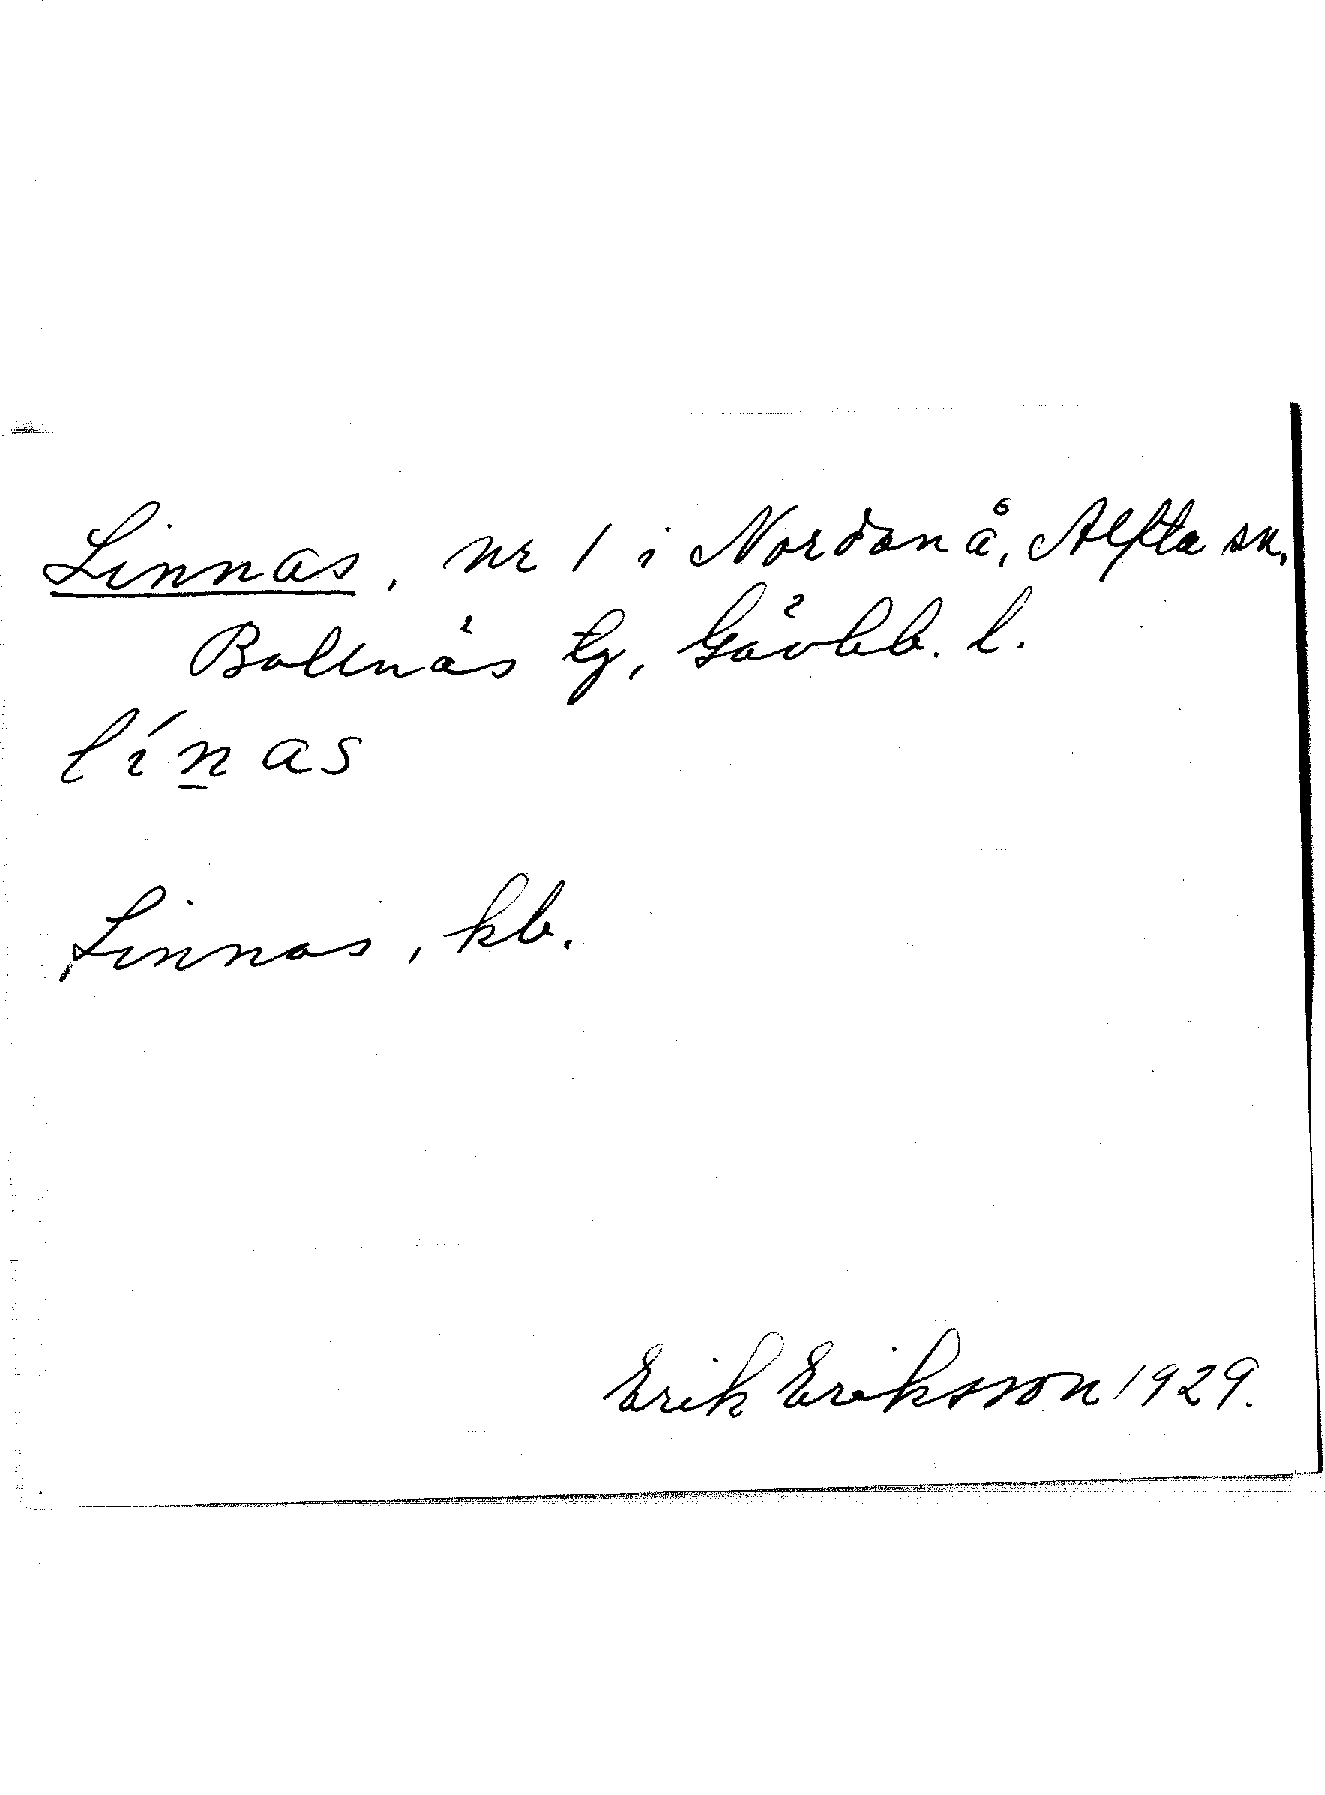 Linnas, nr 1 i Nordanå, Alfta sn,
Bollnäs tg, Gävlb. l.
línas
Linnas, kb.
Erik Eriksson 1929.